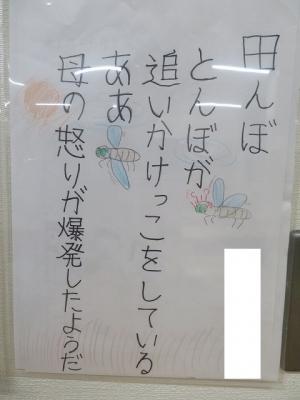 田んぼ
とんぼが
追いかけっこをしている
ああ
母の怒りが爆発したようだ